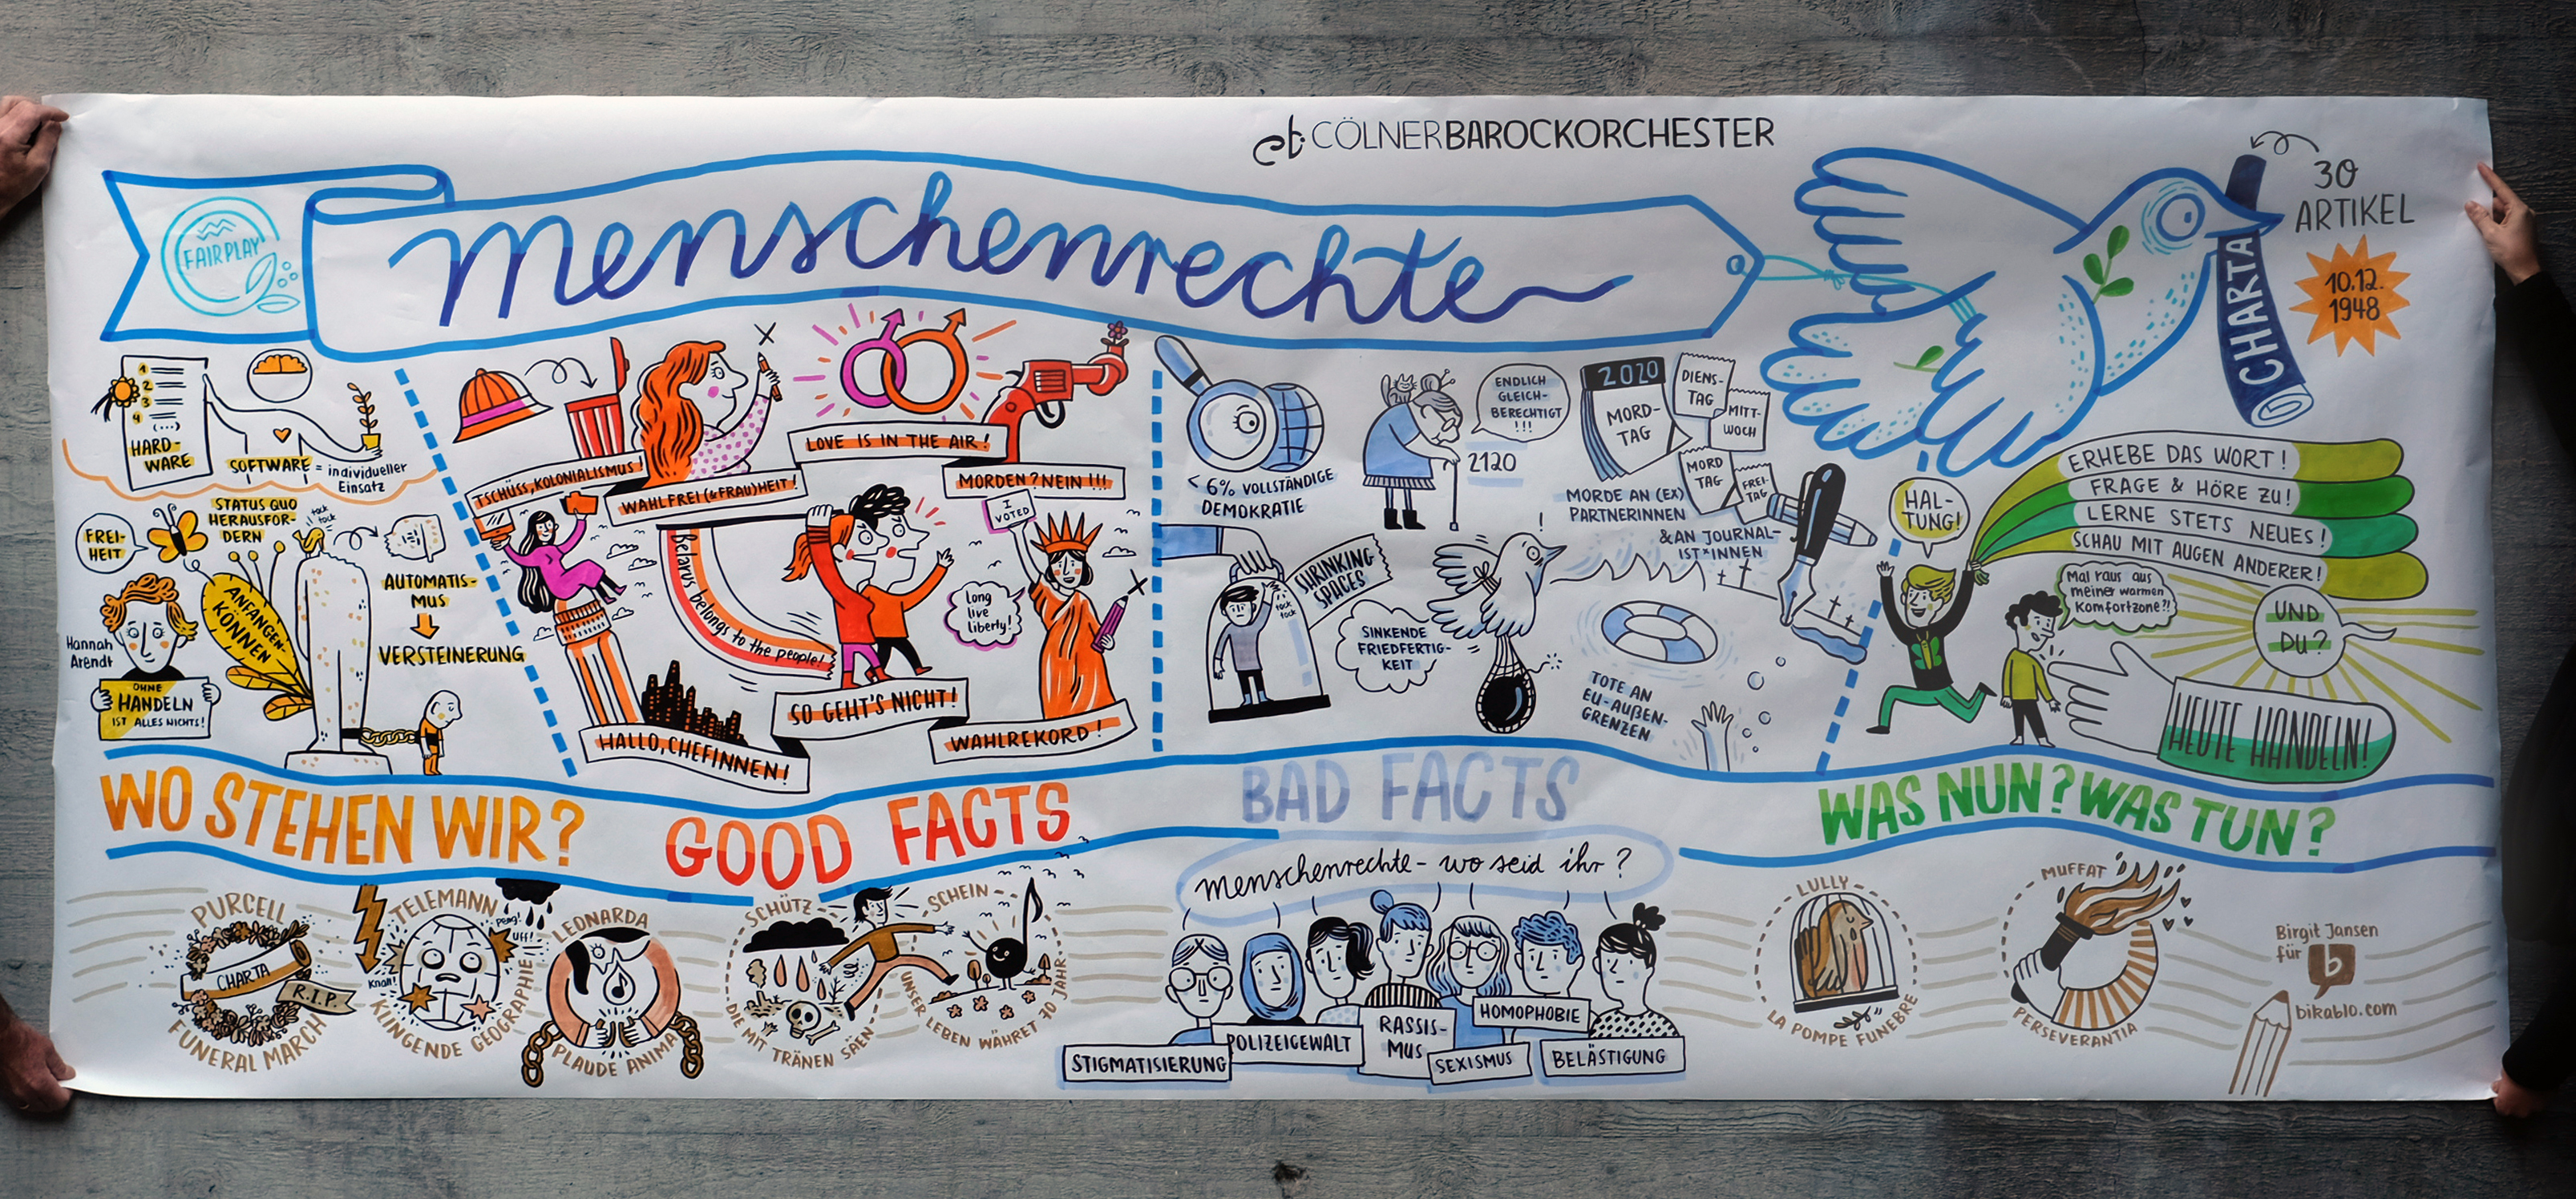 CÖLNERBAROCKORCHESTER
FAIRPLAY
menschenrechte
30
ARTIKEL
CHARTA
10.12.
1948
1
2
3
4
(...)
HARD-
WARE
SOFTWARE = individueller
Einsatz
FREI-
HEIT
STATUS QUO
HERAUSFOR-
DERN
tock
tock
ANFANGEN-
KÖNNEN
AUTOMATIS-
MUS
VERSTEINERUNG
Hannah
Arendt
OHNE
HANDELN
IST ALLES NICHTS!
TSCHÜSS, KOLONIALISMUS!
WAHLFREI(&FRAU)HEIT!
LOVE IS IN THE AIR!
MORDEN? NEIN!!!
I
VOTED
Belarus belongs to the people!
Long
live
liberty!
HALLO, CHEFINNEN!
SO GEHT'S NICHT!
WAHLREKORD!
< 6% VOLLSTÄNDIGE
DEMOKRATIE
ENDLICH
GLEICH-
BERECHTIGT
!!!
2120
2020
MORD-
TAG
DIENS-
TAG
MITT-
WOCH
MORD
TAG
FREI-
TAG
MORDE AN (EX)
PARTNERINNEN
& AN JOURNAL-
IST*INNEN
SHRINKING
SPACES
tock
tock
SINKENDE
FRIEDFERTIG-
KEIT
!
TOTE AN
EU-AUẞEN-
GRENZEN
HAL-
TUNG!
ERHEBE DAS WORT!
FRAGE & HÖRE ZU!
LERNE STETS NEUES!
SCHAU MIT AUGEN ANDERER!
Mal raus aus
meiner warmen
Komfortzone?!
UND
DU?
HEUTE HANDELN!
WO STEHEN WIR?
GOOD FACTS
BAD FACTS
WAS NUN? WAS TUN?
PURCELL
CHARTA
R.I.P.
FUNERAL MARCH
TELEMANN
Peng!
Uff!
Knall!
KLINGENDE GEOGRAPHIE
LEONARDA
PLAUDE ANIMA
SCHÜTZ
DIE MIT TRÄNEN SÄEN
SCHEIN
UNSER LEBEN WÄHRET 70 JAHR
menschenrechte - wo seid ihr?
STIGMATISIERUNG
POLIZEIGEWALT
RASSIS-
MUS
SEXISMUS
HOMOPHOBIE
BELÄSTIGUNG
LULLY
LA POMPE FUNEBRE
MUFFAT
PERSEVERANTIA
Birgit Jansen
für
b
bikablo.com